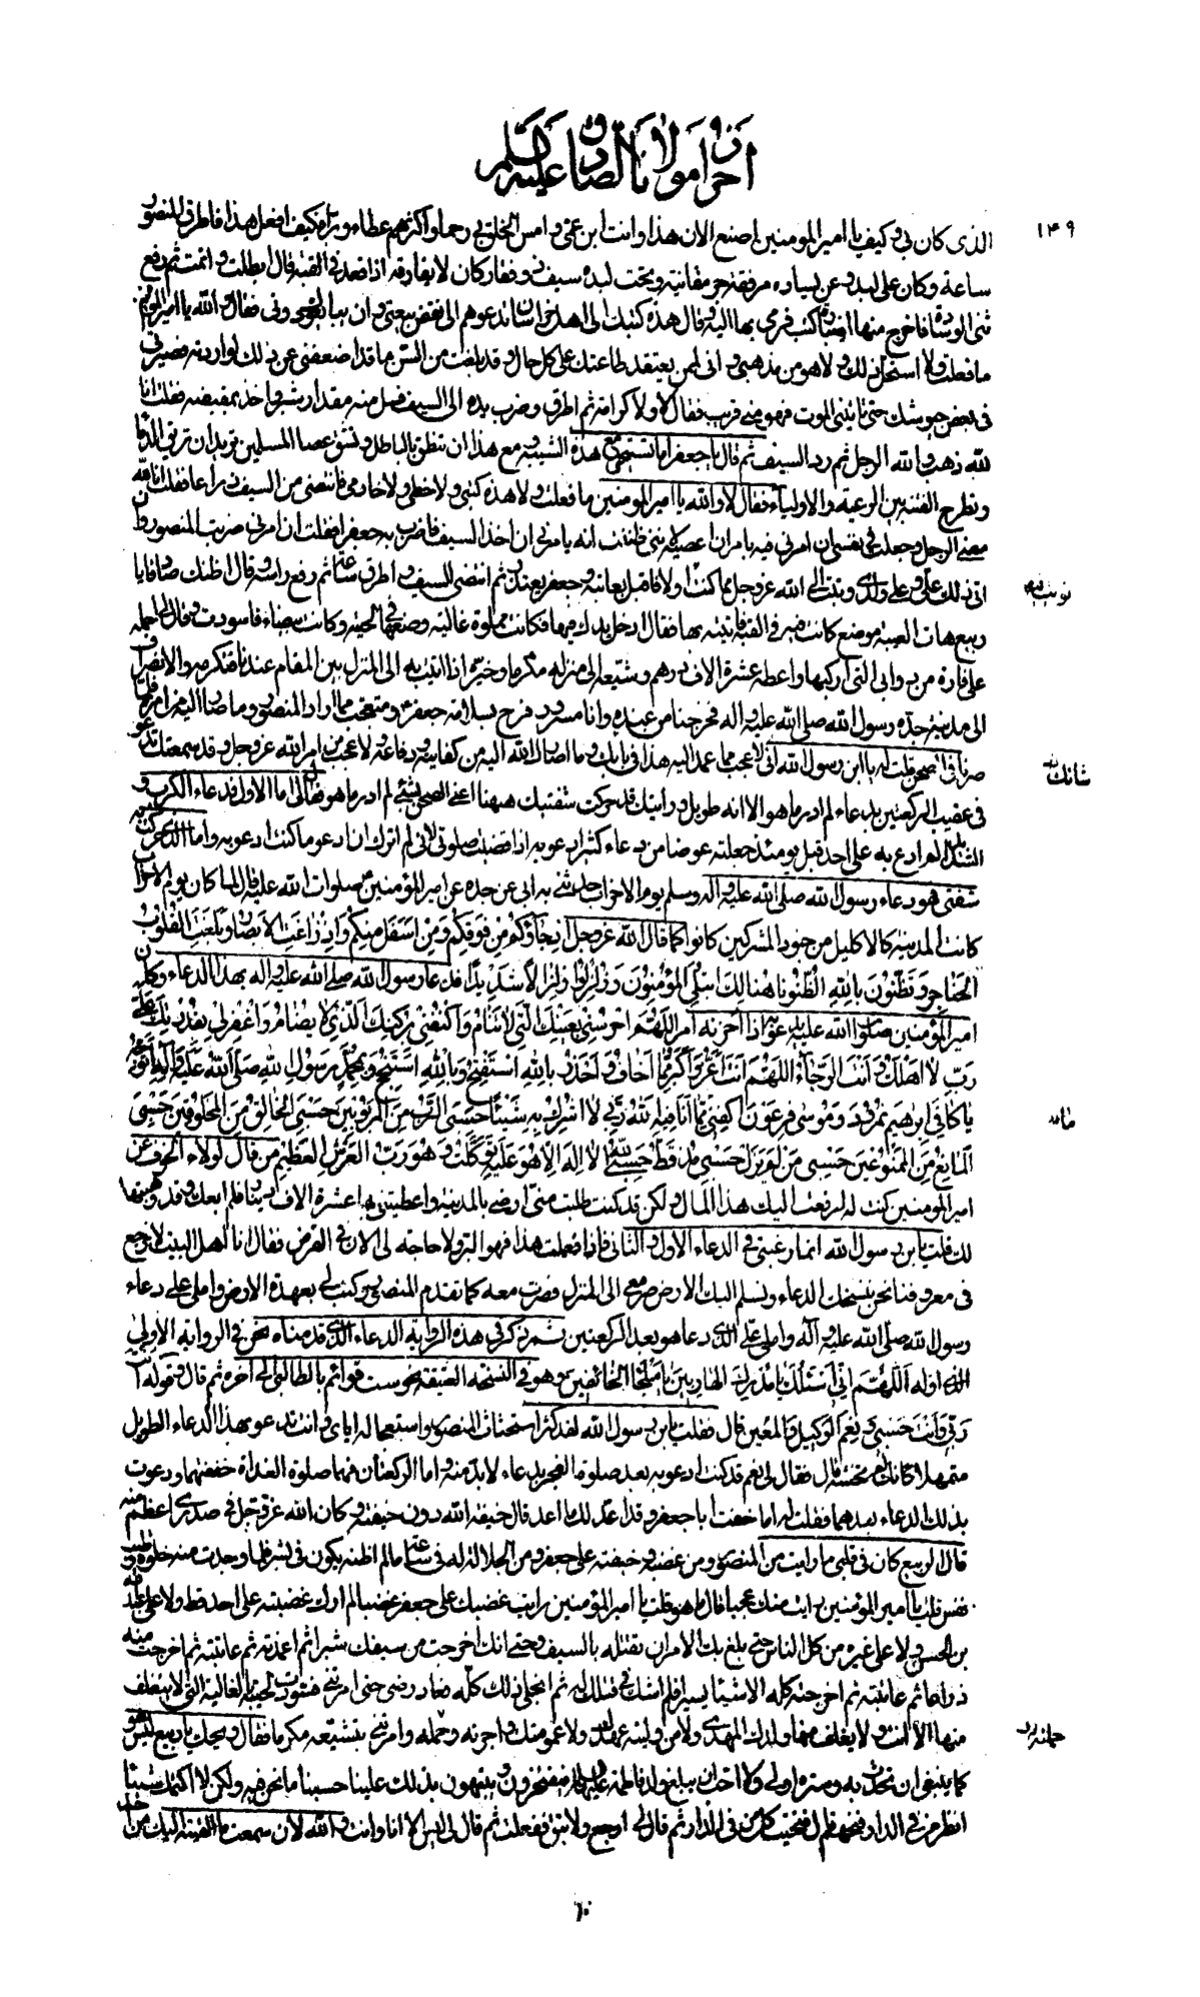 احراز مولانا الصادق عليه السلم
١٤٩
الذى كان بى وكيف يا امير المومنين اصنع الان هذا وانت ابن عمى و امس الخلق بى رحما واكثرهم عطاء وبرا فكيف افعل هذا فاطرق المنصور
ساعة وكان على لبد وعن يساره مرفقة جرمقانية وتحت لبده سيف ذو فقار كان لا يفارقه اذا قعد فى القبة قال ابطلت واثمت ثم رفع
ثنى الوسادة فاخرج منها اضبارة كتب فرمى بها اليه وقال هذه كتبك الى اهل خراسان تدعوهم الى نقض بيعتى وان يبايعوك دونى فقال والله يا امير المومنين
ما فعلت ولا استحل ذلك ولا هو من مذهبى وانى لمن يعتقد طاعتك على كل حال وقد بلغت من السن ما قد اضعفنى عن ذلك لو اردته فصيرنى
فى بعض جيوشك حتى تاتينى الموت فهو منى قريب فقال لا ولا كرامة ثم اطرق وضرب يده الى السيف فسل منه مقدار شبر واخذ بمقبضه فقلت انا
لله ذهب والله الرجل ثم رد السيف ثم قال يا جعفر اما تستحيى مع هذه الشيبة مع هذا ان تنطق بالباطل وتشق عصا المسلمين تريد ان تريق الدما
وتطرح الفتنة بين الرعية والاولياء فقال لا والله يا امير المومنين ما فعلت ولا هذه كتبى ولا خطى ولا خاتمى فانتضى من السيف ذراعا فقلت انا لله
مضى الرجل وجعلت فى نفسى ان امرنى فيه بامر ان اعصيه لاننى ظننت انه يامرنى ان اخذ السيف فاضرب به جعفرا فقلت ان امرنى ضربت المنصور وان
اتى ذلك على وعلى ولدى وتبت الى الله عز وجل مما كنت اولا فاقبل يعاتبه وجعفر يعتذر ثم انتضى السيف و اطرق ساعة ثم رفع راسه وقال اظنك صادقا يا
ربيع هات العيبة موضع كانت فيه فى القبة فاتيته بها فقال ادخل يدك فيها فكانت مملوة غالية وضعها فى لحيته وكانت بيضاء فاسودت وقال لى احمله
على فاره من دوابى التى اركبها واعطه عشرة الاف درهم وشيعه الى منزله مكرما وخيره اذا اتيت به الى المنزل بين المقام عندنا فنكرمه والانصراف
الى مدينة جده رسول الله صلى الله عليه واله فخرجنا من عنده وانا مسرور فرح بسلامة جعفر ومتعجب مما اراد المنصور وما صار اليه من امره فلما
صرنا فى الصحن قلت له يا ابن رسول الله انى لاعجب مما عمد اليه هذا فى بابك وما اصارك الله اليه من كفايته ودفاعه ولا عجب من امر الله عز وجل وقد سمعتك تدعو
فى عقيب الركعتين بدعاء لم ادر ما هو الا انه طويل ورايتك قد حركت شفتيك ههنا اعنى الصحن بشئ لم ادر ما هو فقال لى اما الاول فدعاء الكرب و
الشدائد لم ادع به على احد قبل يومئذ جعلته عوضا من دعاء كثير ادعو به اذا قضيت صلوتى لانى لم اترك ان ادعو ما كنت ادعو به واما الذى حركت به
شفتى هو دعاء رسول الله صلى الله عليه واله وسلم يوم الاحزاب حدثنى به ابى عن جده عن امير المؤمنين صلوات الله عليه قال لما كان يوم الاحزاب
كانت المدينة كالاكليل من جنود المشركين كانوا كما قال الله عز وجل اذ جاؤكم من فوقكم ومن اسفل منكم واذ زاغت الابصار وبلغت القلوب
الحناجر وتظنون بالله الظنونا هنالك ابتلى المؤمنون وزلزلوا زلزالا شديدا فدعا رسول الله صلى الله عليه واله بهذا الدعاء وكان
امير المؤمنين صلوات الله عليه يدعو به اذا احزنه امر اللهم احرسنى بعينك التى لا تنام واكنفنى بركنك الذى لا يضام واغفر لى بقدرتك على
رب لا اهلك وانت الرجاء اللهم انت اعز واكبر مما اخاف واحذر بالله استفتح وبالله استنجح وبمحمد رسول الله صلى الله عليه واله اتوجه
يا كافى ابرهيم نمرود وموسى فرعون اكفنى مما انا فيه الله ربى لا اشرك به شيئا حسبى الرب من المربوبين حسبى الخالق من المخلوقين حسبى
المانع من الممنوعين حسبى من لم يزل حسبى مذ قط حسبى الله لا اله الا هو عليه توكلت وهو رب العرش العظيم ثم قال لولا الخوف من
امير المومنين كنت له لدفعت اليك هذا المال ولكن قد كنت طلبت منى ارضى بالمدينة واعطيتنى بها عشرة الاف دينار فلم ابعك وقد وهبتها
لك قلت يابن رسول الله انما رغبتى فى الدعاء الاول والثانى فاذا فعلت هذا فهو البر ولا حاجة لى الان فى الارض فقال انا اهل البيت لا نرجع
فى معروفنا نحن ننسخك الدعاء ونسلم اليك الارض صر معى الى المنزل فصرت معه كما تقدم المنصور وكتب لى بعهدة الارض واملى على دعاء
رسول الله صلى الله عليه وآله واملى على الذى دعا هو بعد الركعتين ثم ذكر فى هذه الرواية الدعاء الذى قدمناه نحن فى الرواية الاولى
الذى اوله اللهم انى اسئلك يا مدرك الهاربين يا ملجأ الخائفين وهو فى النسخة العتيقة نحو ست قوائم بالطالبى الى اخره ثم قال قوله
ربى وانت حسبى ونعم الوكيل والمعين قال فقلت يابن رسول الله لقد كثر استحثاث المنصور واستعجاله اياى وانت تدعو بهذا الدعاء الطويل
متمهلا كانك لم تخشه قال فقال لى نعم قد كنت ادعو به بعد صلوة الفجر بدعاء لا بد منه واما الركعتان فهما صلوة الغداة خففتهما ودعوت
بذلك الدعاء بعدهما فقلت له اما خفت ابا جعفر وقد اعد لك ما اعد قال خيفة الله دون خيفته وكان الله عز وجل فى صدرى اعظم منه
قال الربيع كان فى قلبى ما رايت من المنصور ومن غضبه وخيفته على جعفر ومن الجلالة له فى ساعة ما لم اظنه يكون فى بشر فلما وجدت منه خلوة وطيب
نفس قلت يا امير المؤمنين رايت منك عجبا قال ما هو قلت يا امير المؤمنين رايت غضبك على جعفر غضبا لم ارك غضبته على احد قط ولا على عبد الله
بن الحسن ولا على غيره من كل الناس حتى بلغ بك الامر ان تقتله بالسيف وحتى انك اخرجت من سيفك شبرا ثم اغمدته ثم عاتبته ثم اخرجت منه
ذراعا ثم عاتبته ثم اخرجته كله الا شيئا يسيرا فلم اشك فى قتلك له ثم انجلى ذلك كله فعاد رضى حتى امرتنى فسودت لحيته بالغالية التى لا يتغلف
منها الا انت ولا يغلف منها ولدك المهدى ولا من وليته عهدك ولا عمومتك واجزته وحمله وامرتنى بتشييعه مكرما فقال ويحك يا ربيع ليس هو
كما ينبغى ان تحدث به وستره اولى ولا احب ان يبلغ ولد فاطمة عليها السلام فيفتخرون ويتيهون بذلك علينا حسبنا ما نحن فيه ولكن لا اكتمك شيئا
انظر من فى الدار فنحهم قال فنحيت كل من فى الدار ثم قال لى ارجع ولا تبق ففعلت ثم قال لى ليس الا انا وانت والله لان سمعت ما القيته اليك من احد